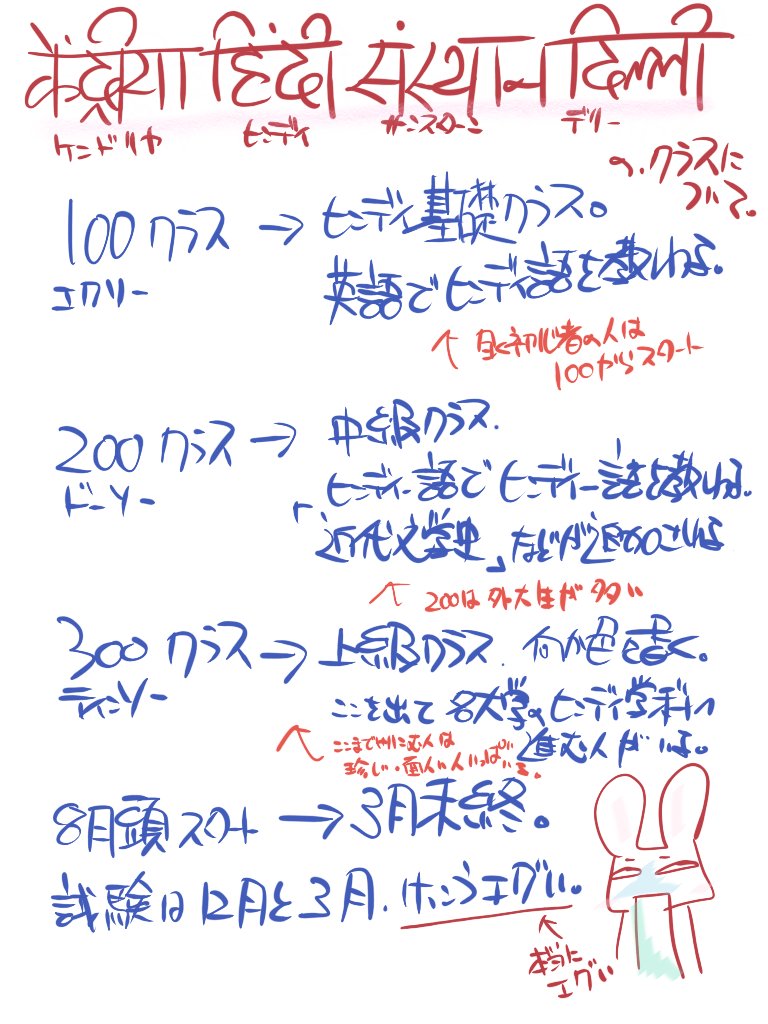 केंद्रीया हिंदी संस्थान दिल्ली
ケンドリヤ ヒンディ サンスターン デリー
の、クラスに
ついて。
100クラス → ヒンディ基礎クラス。
エクソー
英語でヒンディ語を教わる。
↑ 全く初心者の人は
100からスタート
200クラス → 中級クラス.
ドーソー
ヒンディー語でヒンディー語を教わる。
「近代文学史」などが
↑ 200は外大生が多い
300クラス → 上級クラス. 何か色々書く。
ティンソー
ここを出て各大学のヒンディ学科へ
進む人がいる。
↑ ここまでやりこむ人は
珍しい・面白い人いっぱいいる。
8月頭スタート → 3月末終。
試験は12月と3月. けっこうエグい。
↑ 本当に
エグい